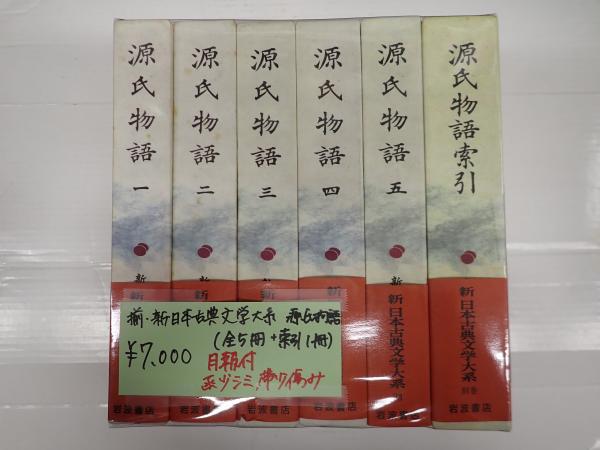 源氏物語 一
源氏物語 二
源氏物語 三
源氏物語 四
源氏物語 五
源氏物語索引
新
新
新
新
新
新
新
新
新日本古典文学大系
新日本古典文学大系
別巻
揃・新日本古典文学大系 源氏物語
(全5冊+索引1冊)
¥7,000
月報付
函少シミ、帯少傷み
岩波書店
岩波書店
岩波書店
岩波書店
岩波書店
岩波書店